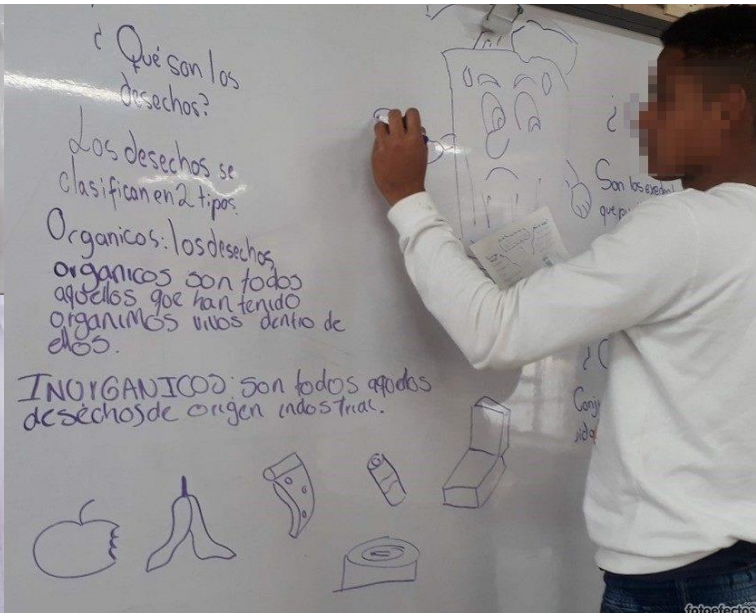 ¿Qué son los
desechos?
Los desechos se
clasifican en 2 tipos.
Organicos: los desechos
organicos son todos
aquellos que han tenido
organimos vivos dentro de
ellos.
INOrGANICOS: son todos aquellos
desechos de origen industrial.
¿
Son los
que
¿
fotoefectos